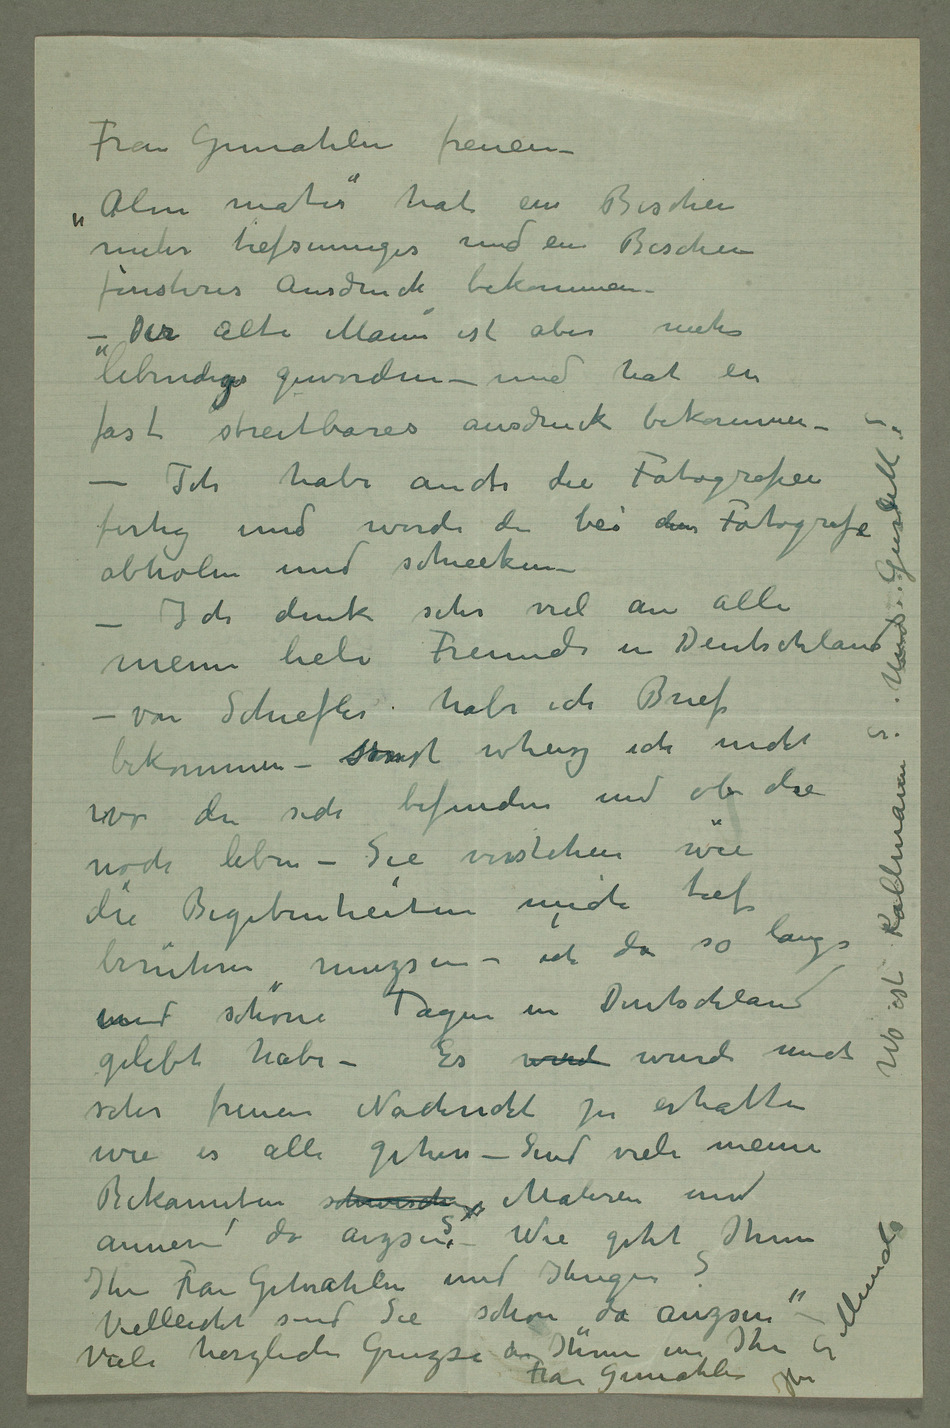 Frau Gemahlin freuen –
„Alma mater“ hat ein Bischen
mehr tiefsinniges und ein Bischen
finsteres Ausdruck bekommen –
– Der alte Mann ist aber mehr
lebendiges geworden – und hat ein
fast streitbares ausdruck bekommen –
– Ich habe auch die Fotografien
fertig und werde die bei den Fotografe
abholen und schicken –
– Ich denk sehr viel an alle
meine liebe Freunde in Deutschland
– von Schiefler habe ich Brief
bekommen – sonst weisz ich nicht
wo die sich befinden und ob die
noch leben – Sie verstehen wie
die Begebenheiten mich tief
berühren muszen – ich da so lange
und schöne Tagen in Deutschland
gelebt habe – Es wurde mich
sehr freuen Nachricht zu erhalten
wie es alle gehen – Sind viele meine
Bekannten Maleren und
annen da auszen? – Wie geht Ihnen
Ihre Frau Gehmahlin und Jhnger ?
Vielleicht sind Sie schon da auszen –
Viele herzliche Gruzse an Ihnen un Ihre
Frau Gemahlin
Ihr E Munch
Wo ist Kollmann